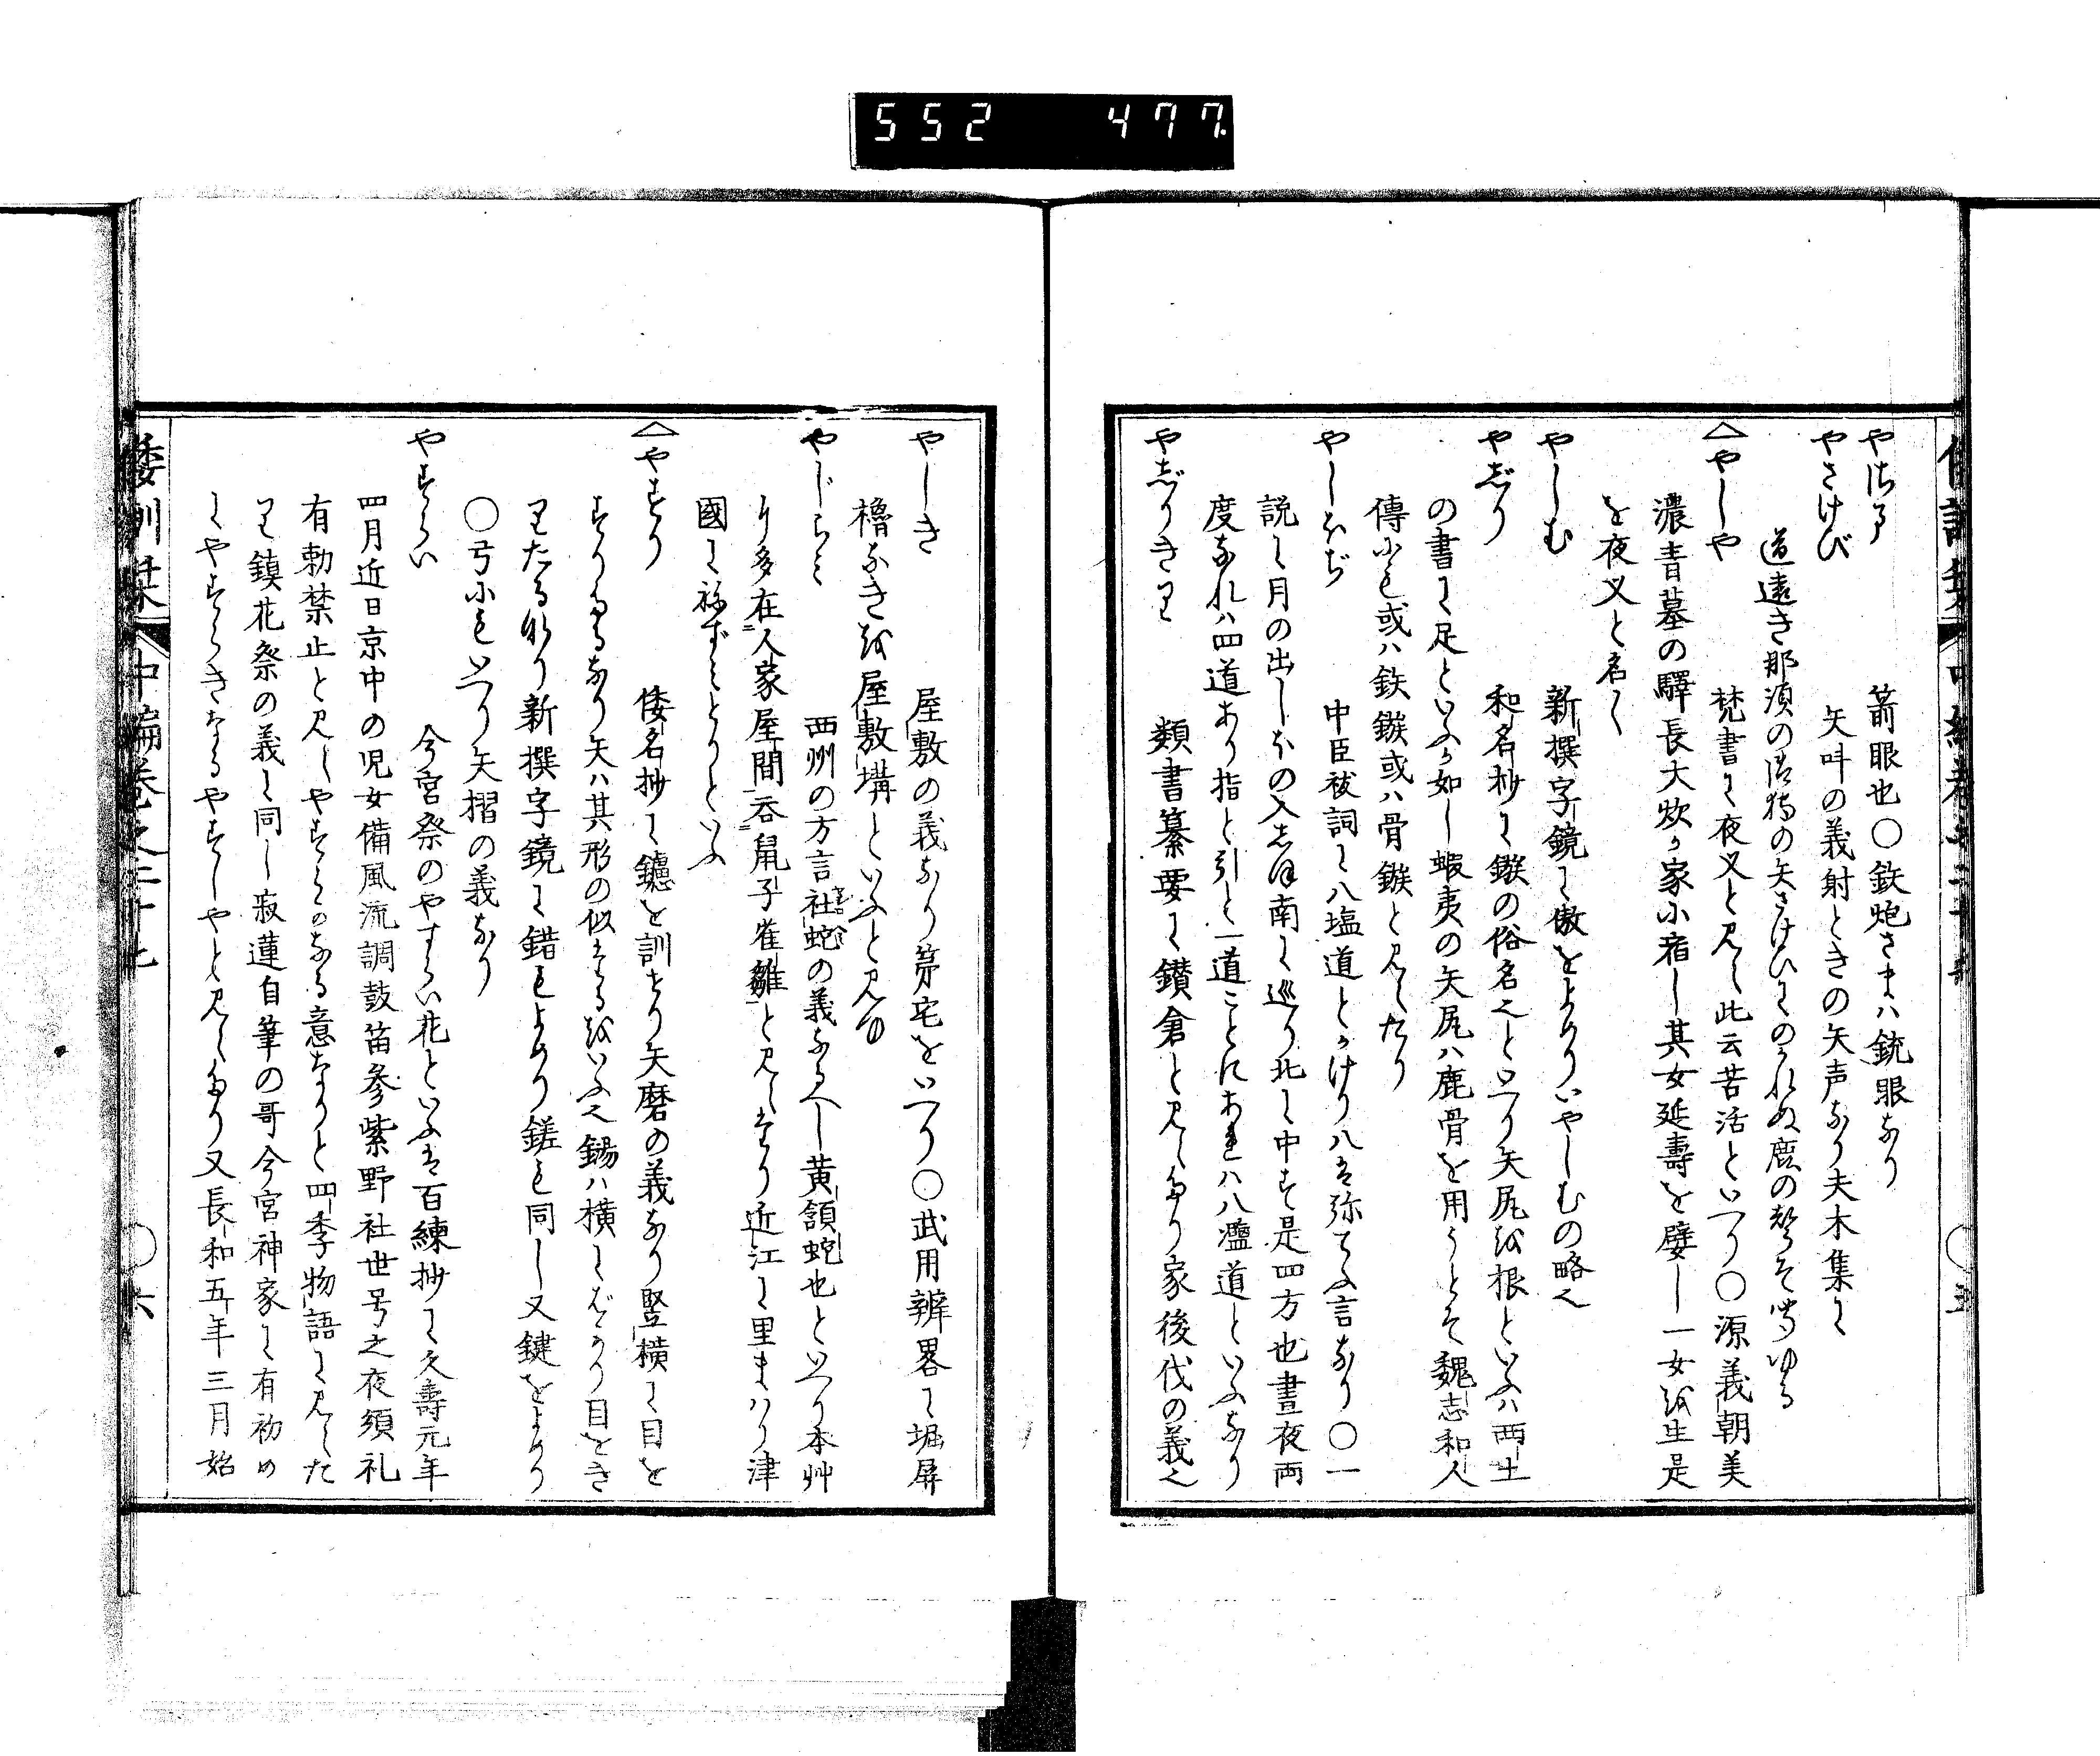 552 477
やさま 箭眼也〇鉄炮さまハ銃眼なり
やさけび 矢叫の義射ときの矢声なり夫木集に
道遠き那須の御狩の矢さけひにのかれぬ鹿の聲そ聞ゆる
△やしや 梵書に夜叉と見え此云苦活といへり〇源義朝美
濃青墓の驛長大炊か家に宿し其女延壽を嬖し一女を生是
を夜叉と名く
やしむ 新撰字鏡に傲をよめりいやしむの略也
やじり 和名抄に鏃の俗名也といへり矢尻を根といふハ西土
の書に足といふか如し蝦夷の矢尻ハ鹿骨を用うとそ魏志和人
傳にも或ハ鉄鏃或ハ骨鏃と見えたり
やしほぢ 中臣祓詞に八塩道とかけり八は弥てふ言なり〇一
説に月の出しほの入しほ南に巡り北に中す是四方也晝夜両
度なれハ四道あり指と引と一道ことにあれハ八塩道といふなり
やじりきり 類書纂要に鑚倉と見えたり家後代の義也
やしき 屋敷の義なり第宅をいへり〇武用辨畧に堀屏
櫓なきを屋敷構といふと見ゆ
やじらみ 西州の方言社蛇の義なるへし黄頷蛇也といへり本艸
に多在人家屋間呑鼠子雀雛と見えたり近江に里まハり津
國にねずみとりといふ
△やすり 倭名抄に鑢を訓せり矢磨の義なり竪横に目を
すりたるなり矢ハ其形の似たるをいふ也鐋ハ横にばかり目をき
りたるなり新撰字鏡に錯もよめり鎈も同し又鍵をよめり
〇弓にもいへり矢摺の義なり
やすらい 今宮祭のやすらい花といふは百練抄に久壽元年
四月近日京中の児女備風流調鼓笛参紫野社世号之夜須礼
有勅禁止と見えやすらゐなる意なりと四季物語に見えた
り鎮花祭の義に同し寂蓮自筆の哥今宮神家に有初め
にやすらきなるやすしやと見えたり又長和五年三月始
倭訓栞 中編巻之二十七 〇六